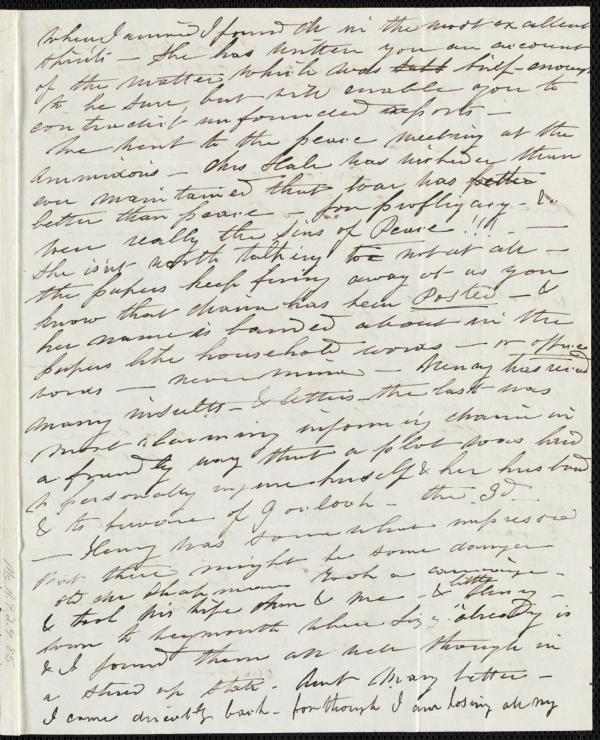 When I arrived I found Ch in the most excellent
spirits — She has written you an account
of the matter which was brief enough
to be sure, but will enable you to
contradict unfounded reports —
We went to the peace meeting at the
Mrs Hale was wickeder than
ever maintained that war was
better than peace — for profligacy — &c
were really the sins of Peace!!! —
She isn't worth talking to not at all —
the papers keep firing away at us you
know that Maria has been Posted — &
her name is bandied about in the
papers like household words — or office
words — never mind — Henry has recd
many insults — & letters the last was
most alarming informing Maria in
a friendly way that a plot was laid
to personally injure herself & her husband
& to beware of 9 o'clock — the 3d
— Henry was somewhat impressed
that there might be some danger
so he took a carriage —
& took his wife & me — & little Henry —
down to Weymouth where Lizzy already is
& I found them all well though in
a stirred up state. Aunt Mary better —
I came directly back — for though I am losing all my
Ms. A. 9. 2. 4. 85